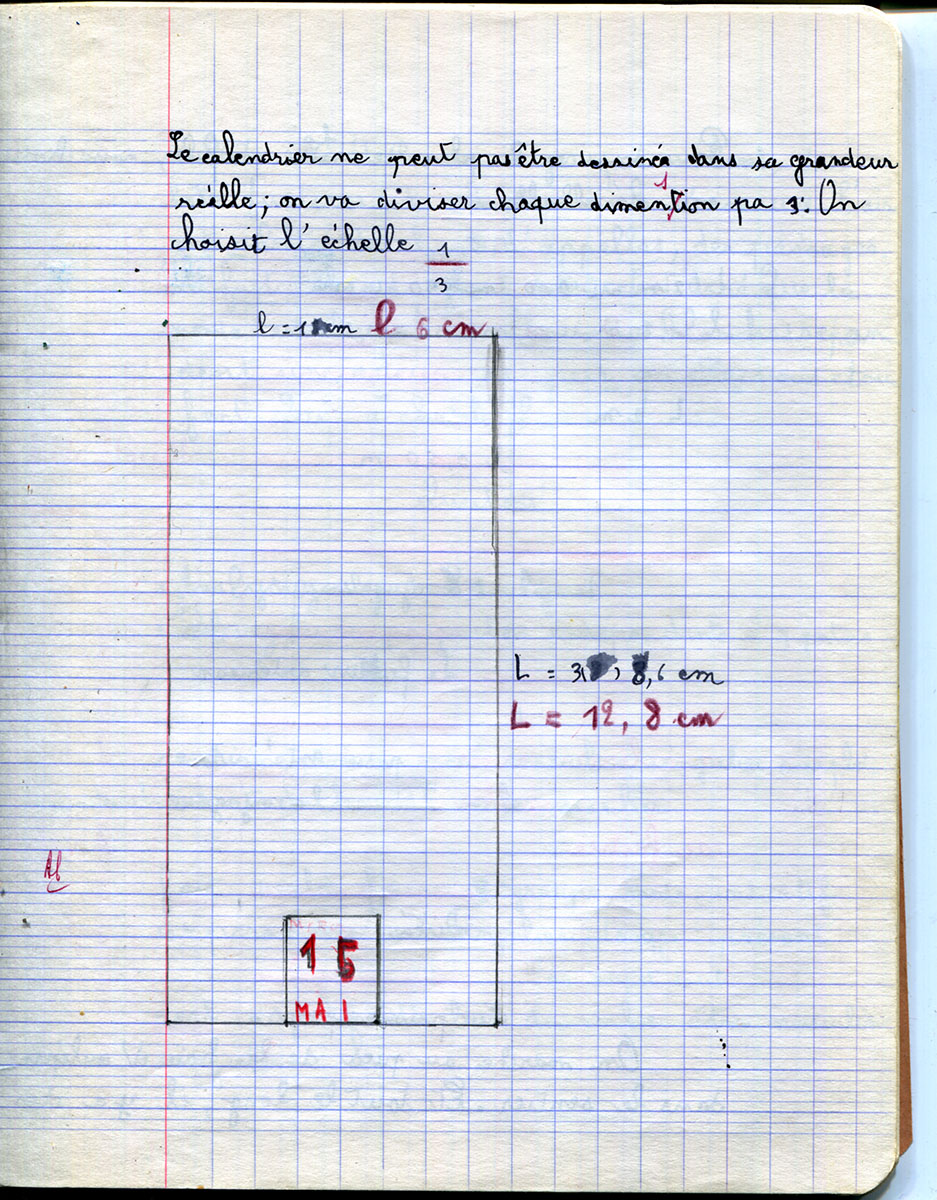 Le calendrier ne peut pas être dessiné dans sa grandeur
réalle; on va diviser chaque dimenſion pa 3. On
choisit l'échelle 1/3
l = 1 cm l 6 cm
L = 3 , 8,6 cm
L = 12, 8 cm
Ab
15
MAI